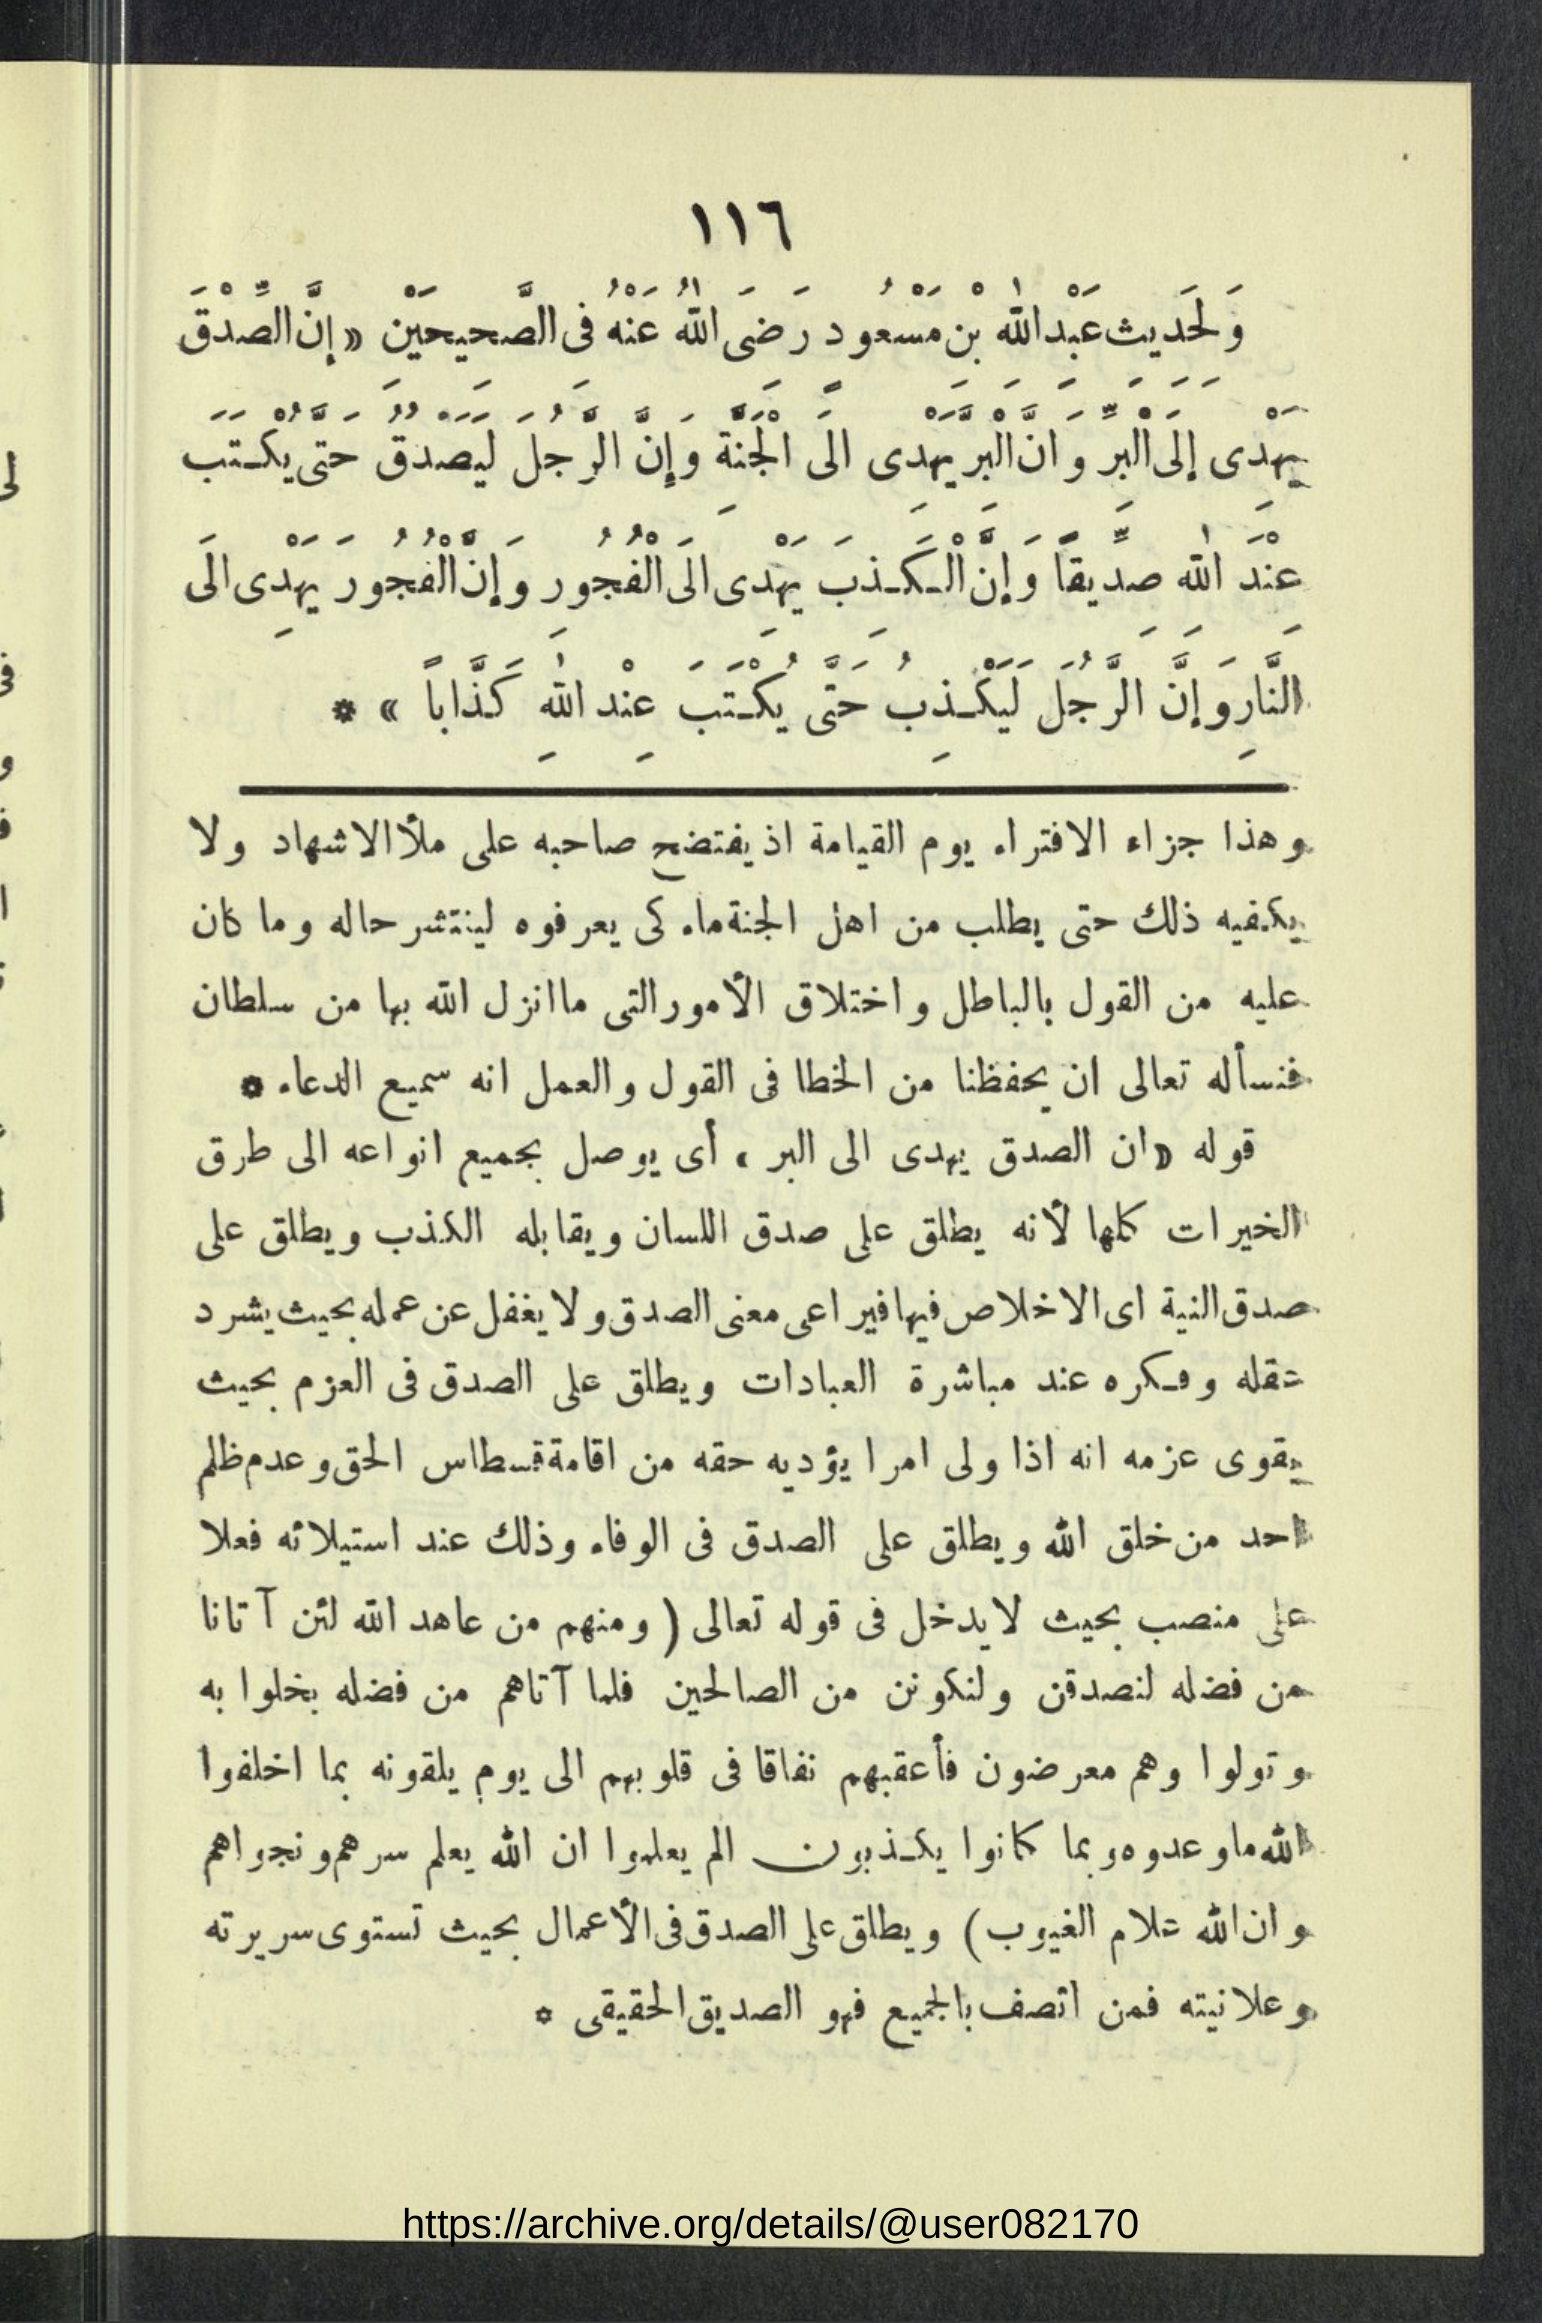 ١١٦
وَلِحَدِيثِ عَبْدِ اللّٰهِ بْنِ مَسْعُودٍ رَضِىَ اللّٰهُ عَنْهُ فِى الصَّحِيحَيْنِ « إِنَّ الصِّدْقَ
يَهْدِى إِلَى الْبِرِّ وَانَّ الْبِرَّ يَهْدِى الَى الْجَنَّةِ وَإِنَّ الرَّجُلَ لَيَصْدُقُ حَتَّى يُكْتَبَ
عِنْدَ اللّٰهِ صِدِّيقًا وَإِنَّ الْكَذِبَ يَهْدِى الَى الْفُجُورِ وَإِنَّ الْفُجُورَ يَهْدِى الَى
النَّارِ وَإِنَّ الرَّجُلَ لَيَكْذِبُ حَتَّى يُكْتَبَ عِنْدَ اللّٰهِ كَذَّاباً » *
وهذا جزاء الافتراء يوم القيامة اذ يفتضح صاحبه على ملأ الاشهاد ولا
يكفيه ذلك حتى يطلب من اهل الجنة ماء كى يعرفوه لينتشر حاله وما كان
عليه من القول بالباطل واختلاق الأمور التى ما انزل الله بها من سلطان
فنسأله تعالى ان يحفظنا من الخطا فى القول والعمل انه سميع الدعاء *
قوله « ان الصدق يهدى الى البر » أى يوصل بجميع انواعه الى طرق
الخيرات كلها لأنه يطلق على صدق اللسان ويقابله الكذب ويطلق على
صدق النية اى الاخلاص فيها فيراعى معنى الصدق ولا يغفل عن عمله بحيث يشرد
عقله وفكره عند مباشرة العبادات ويطلق على الصدق فى العزم بحيث
يقوى عزمه انه اذا ولى امرا يؤديه حقه من اقامة قسطاس الحق وعدم ظلم
احد من خلق الله ويطلق على الصدق فى الوفاء وذلك عند استيلائه فعلا
على منصب بحيث لا يدخل فى قوله تعالى ( ومنهم من عاهد الله لئن آتانا
من فضله لنصدقن ولنكونن من الصالحين فلما آتاهم من فضله بخلوا به
وتولوا وهم معرضون فأعقبهم نفاقا فى قلوبهم الى يوم يلقونه بما اخلفوا
الله ما وعدوه وبما كانوا يكذبون الم يعلموا ان الله يعلم سرهم ونجواهم
وان الله علام الغيوب ) ويطلق على الصدق فى الأعمال بحيث تستوى سريرته
وعلانيته فمن اتصف بالجميع فهو الصديق الحقيقى *
https://archive.org/details/@user082170